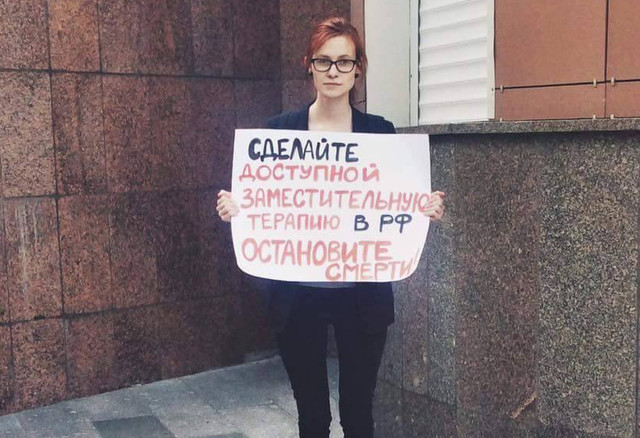 СДЕЛАЙТЕ
ДОСТУПНОЙ
ЗАМЕСТИТЕЛЬНУЮ
ТЕРАПИЮ В РФ
ОСТАНОВИТЕ
СМЕРТИ!